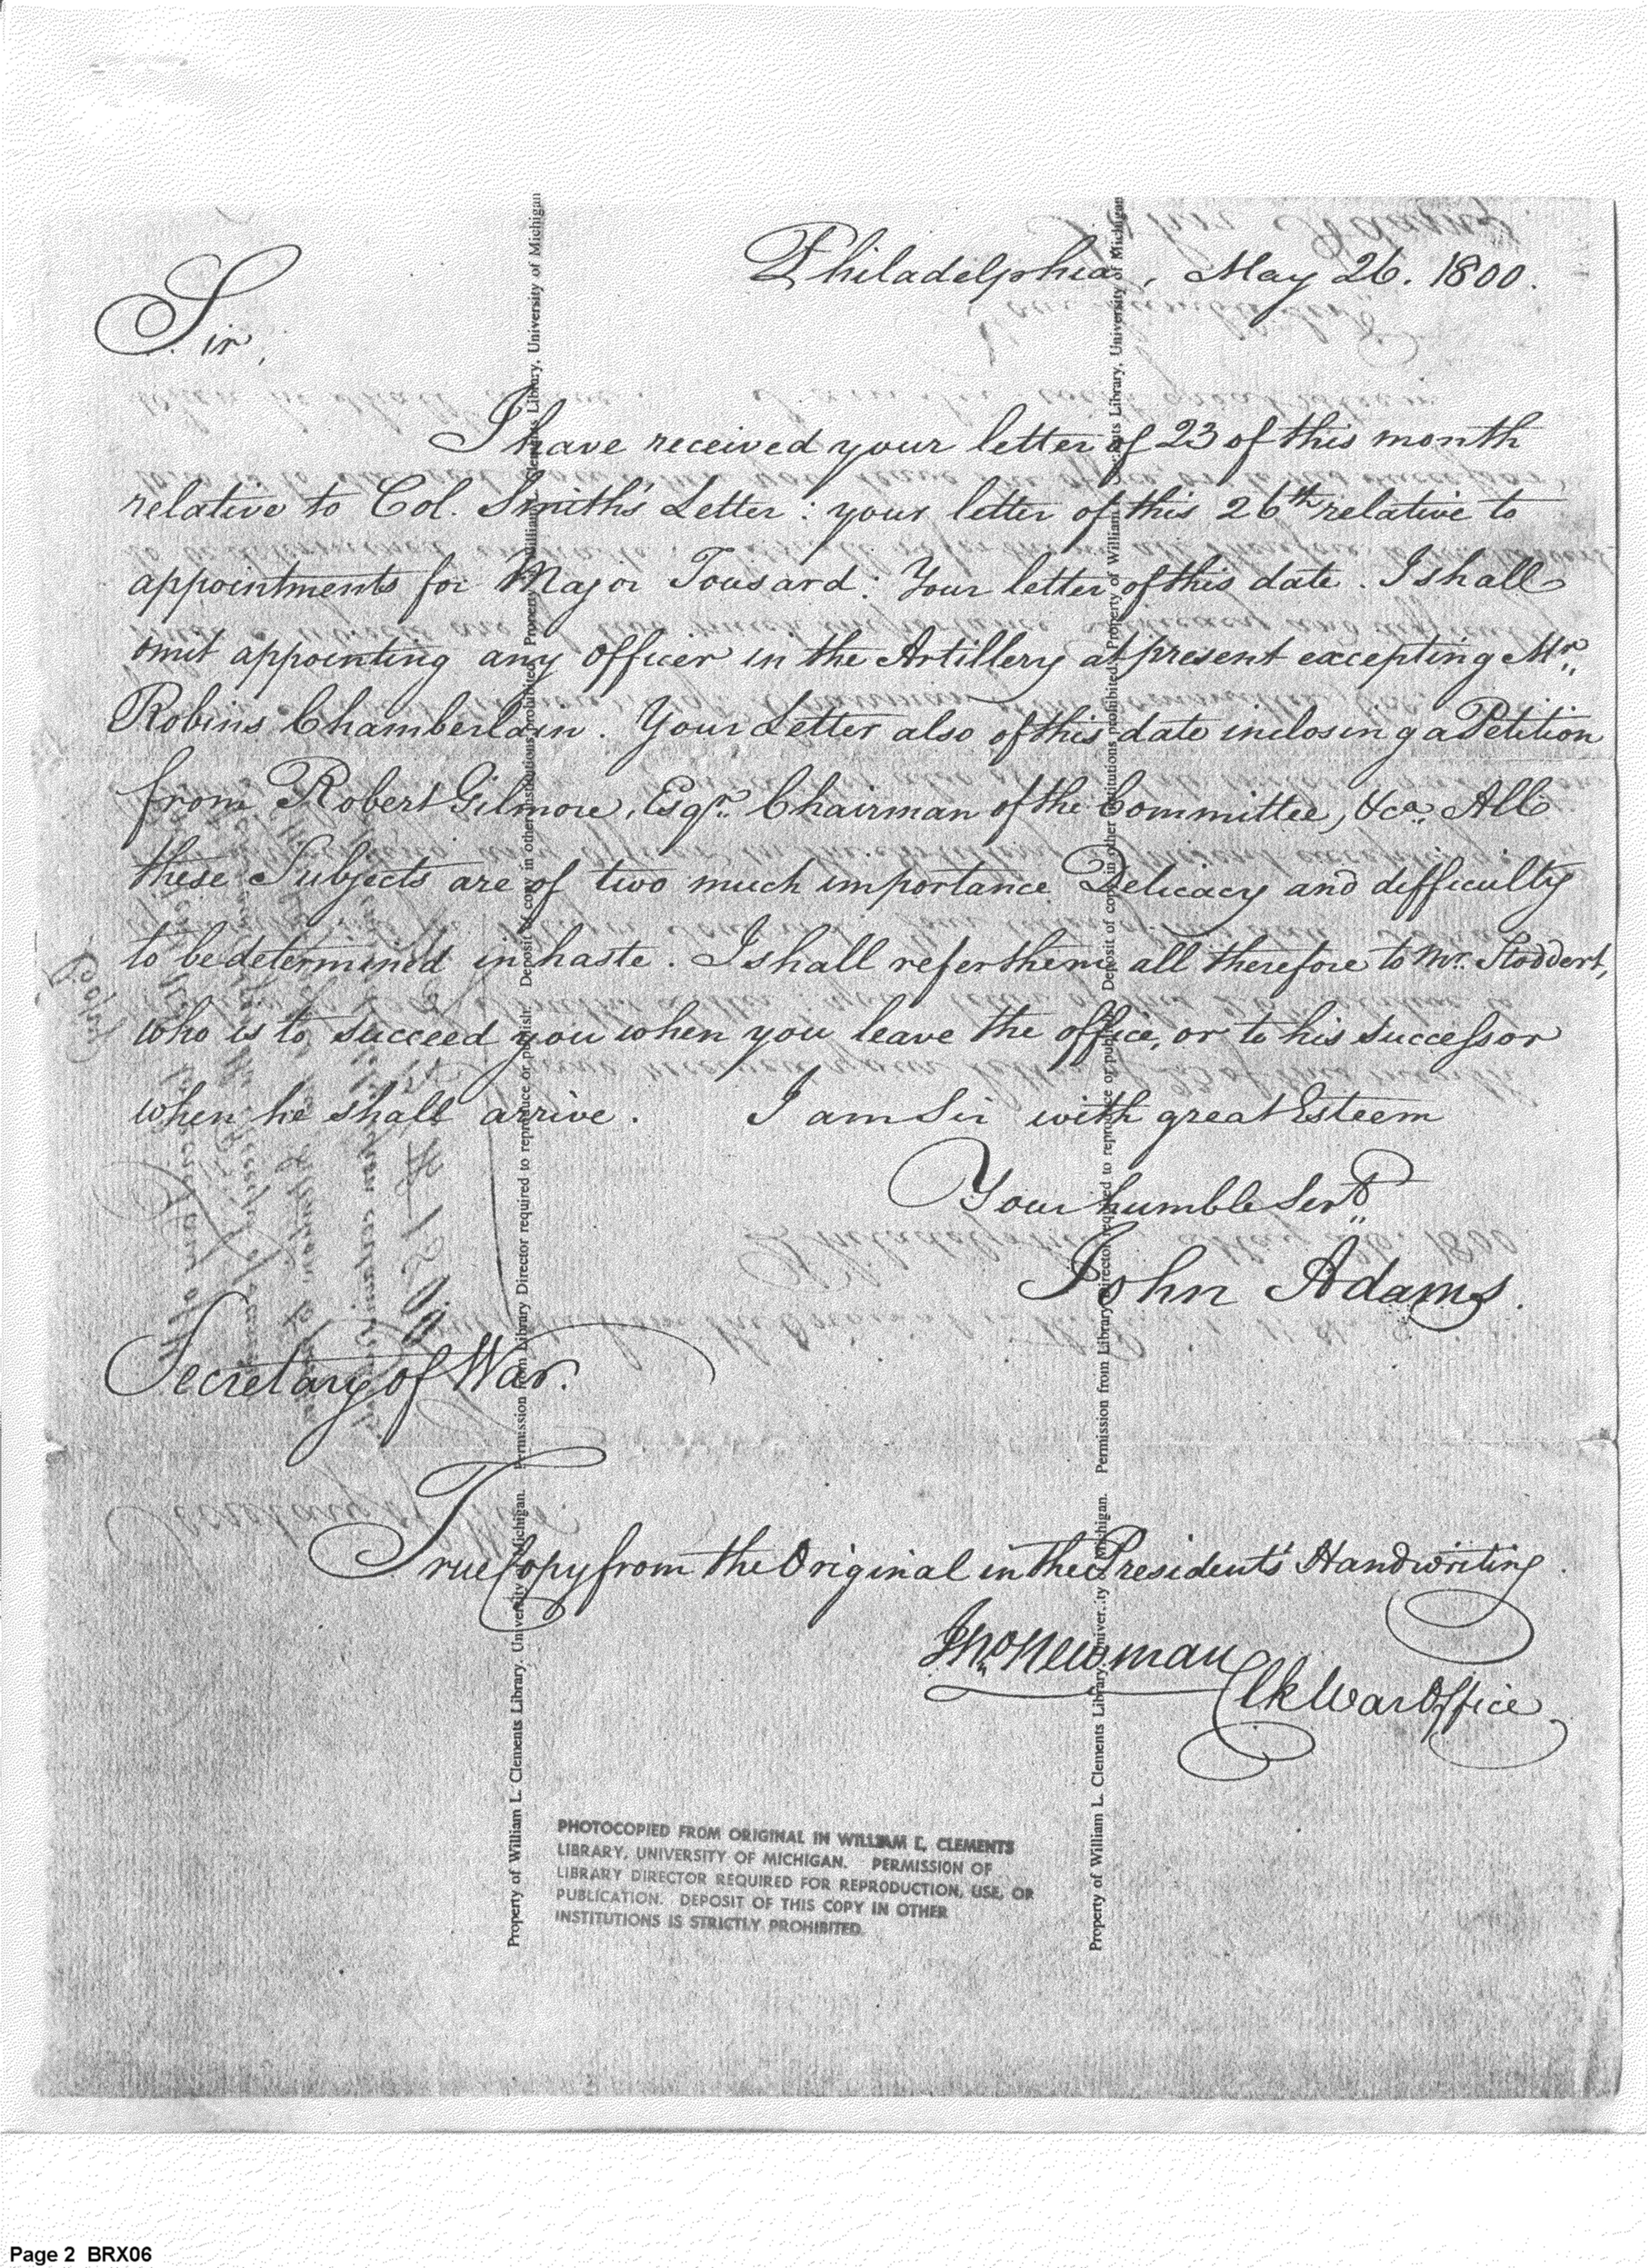 Philadelphia, May 26. 1800.
Sir,
I have received your letter of 23 of this month
relative to Col. Smith's Letter: your letter of this 26th relative to
appointments for Major Tousard: Your letter of this date. I shall
omit appointing any officer in the Artillery at present excepting Mr.
Robins Chamberlain. Your Letter also of this date inclosing a Petition
from Robert Gilmore, Esqr. Chairman of the Committee, &ca. All
these Subjects are of two much importance Delicacy and difficulty
to be determined in haste. I shall refer them all therefore to Mr. Stoddert,
who is to succeed you when you leave the office, or to his successor
when he shall arrive. I am Sir with great Esteem
Your humble Servt.
John Adams.
Secretary of War.
True Copy from the Original in the Presidents' Handwriting.
Jno. Newman
Clk War Office
Property of William L. Clements Library, University of Michigan. Permission from Library Director required to reproduce or publish. Deposit of copy in other institutions prohibited. Property of William L. Clements Library, University of Michigan
Property of William L. Clements Library, University of Michigan. Permission from Library Director required to reproduce or publish. Deposit of copy in other institutions prohibited. Property of William L. Clements Library, University of Michigan
PHOTOCOPIED FROM ORIGINAL IN WILLIAM L. CLEMENTS
LIBRARY, UNIVERSITY OF MICHIGAN. PERMISSION OF
LIBRARY DIRECTOR REQUIRED FOR REPRODUCTION, USE, OR
PUBLICATION. DEPOSIT OF THIS COPY IN OTHER
INSTITUTIONS IS STRICTLY PROHIBITED
Page 2 BRX06